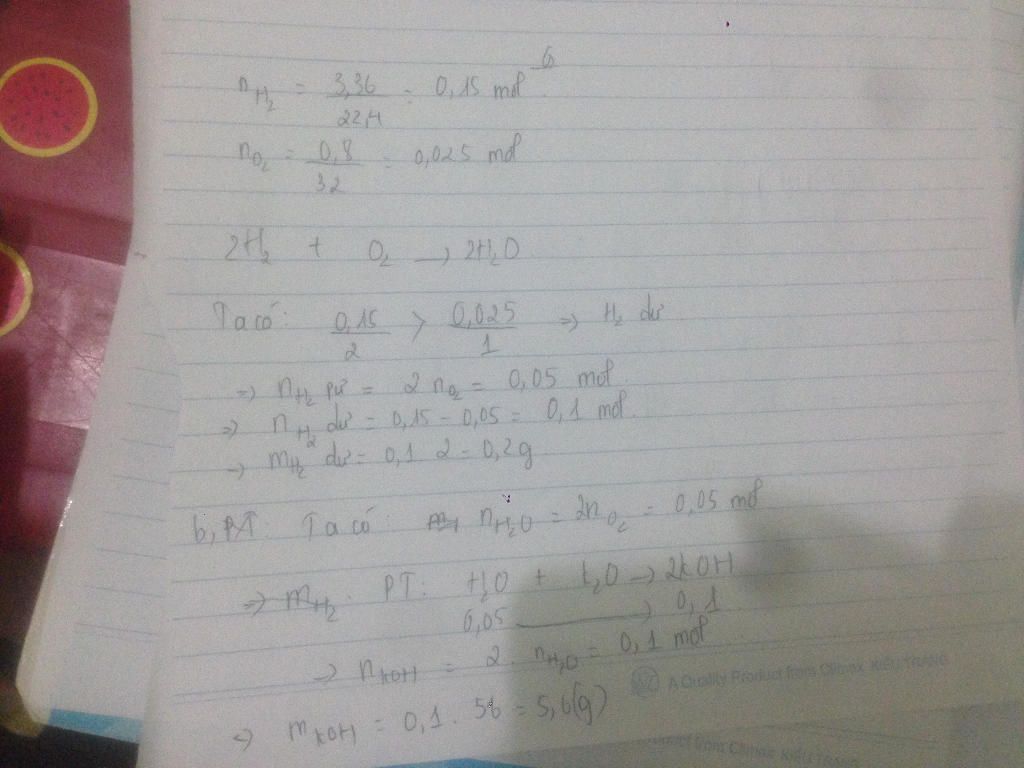 6
n H₂ = 3,36 / 22,4 = 0,15 mol
n O₂ = 0,8 / 32 = 0,025 mol
2H₂ + O₂ → 2H₂O
Ta có: 0,15 / 2 > 0,025 / 1 => H₂ dư
=> n H₂ pứ = 2 n O₂ = 0,05 mol
=> n H₂ dư = 0,15 - 0,05 = 0,1 mol
→ m H₂ dư = 0,1 . 2 = 0,2g
b, PT: Ta có: n H₂O = 2n O₂ = 0,05 mol
=> m H₂. PT: H₂O + K₂O → 2KOH
0,05 → 0,1
→ n KOH = 2. n H₂O = 0,1 mol
A Quality Product from Climax KIỀU TRANG
=> m KOH = 0,1 . 56 = 5,6(g)
Product from Climax KIỀU TRANG